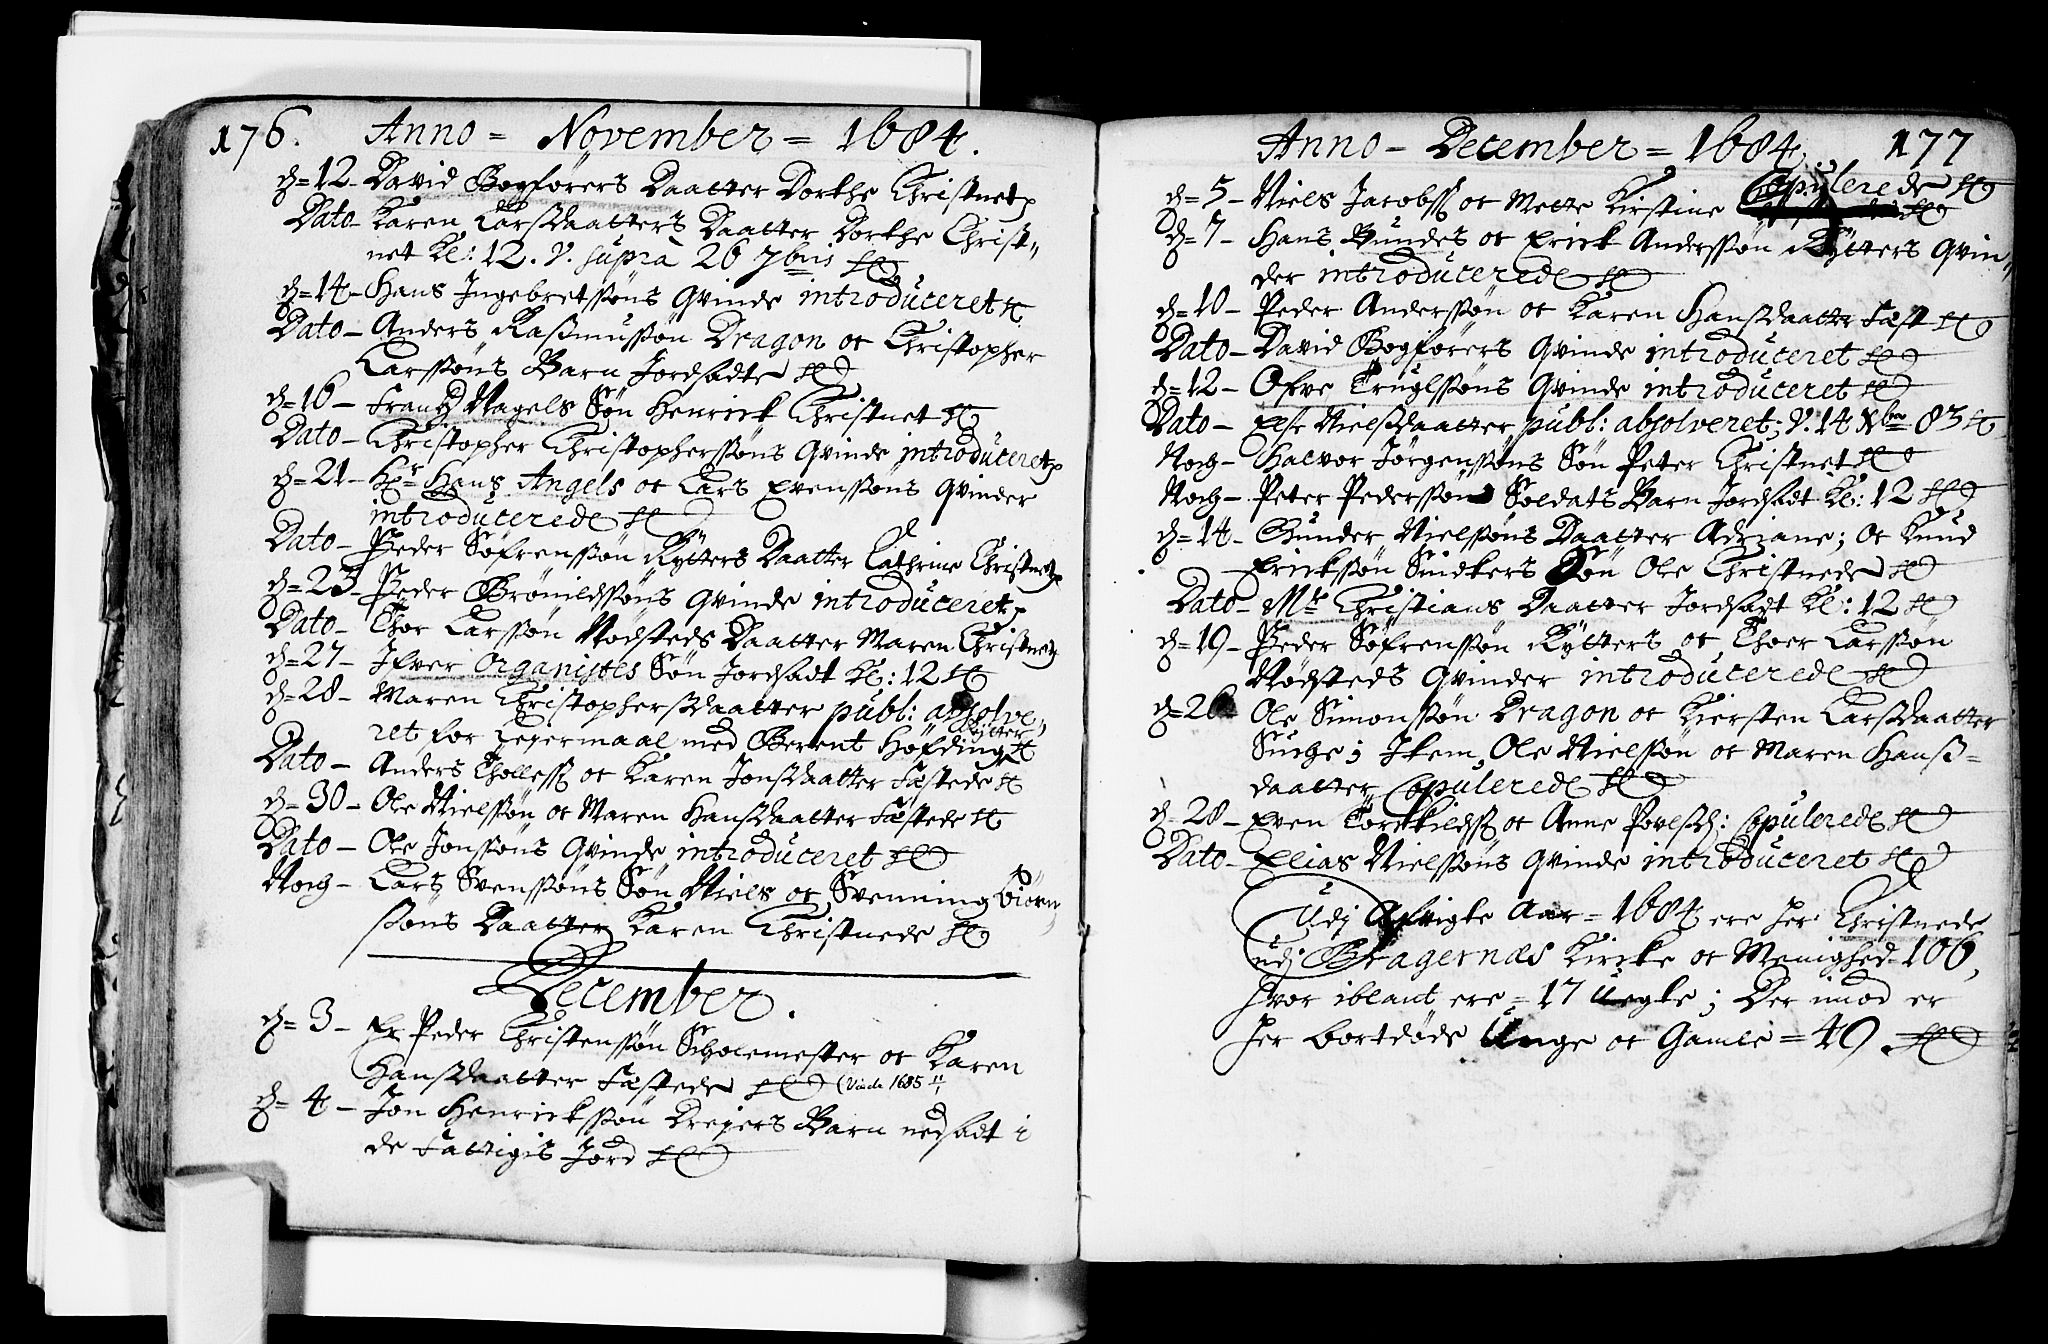 176. Anno = November = 1684.
d=12- David Bogførers Daatter Dorthe Christnet
Dato- Karen Larsdaatters Daatter Dorthe Christ-
net Kl: 12. V. supra 26 7bris
d=14- Hans Ingebretssøns Qvinde introduceret
Dato- Anders Rasmussøn Dragon oc Christopher
Larssøns Barn Jordsatte
d=16- Frantz Nagels Søn Henrick Christnet
Dato- Christopher Christopherssøns Qvinde introduceret
d=21- Hr Hans Angels oc Lars Evenssøns Qvinder
introducerede
Dato- Peder Søfrenssøn Rytters Daatter Cathrine Christnet
d=23- Peder Brønildssøns Qvinde introduceret
Dato- Thor Larssøn Nødsteds Daatter Maren Christnet
d=27- Ifver Organistes Søn Jordsadt Kl: 12
d=28- Maren Christophersdaatter publ: absolve-
ret for Legermaal med Berent Høfding Rytter
Dato- Anders Tholless oc Karen Jonsdaatter Fæstede
d=30- Ole Nielssøn oc Maren Hansdaatter Fæstede
Dato- Ole Jonssøns Qvinde introduceret
Noch- Lars Svenssøns Søn Niels oc Svenning Biørn-
ssøns Daatter Karen Christnede
December.
d=3- Hr Peder Christenssøn Scholemester oc Karen
Hansdaatter Fæstede (Vide 1685
d=4- Jon Henrickssøn Dreyers Barn nedsadt i
de Fattigis Jord
Anno - December = 1684. 177
d=5- Niels Jacobss oc Mette Kirstine Copulerede
d=7- Hans Bundes oc Erick Anderssøn Rytters Qvin-
der introducerede
d=10- Peder Anderssøn oc Karen Hansdaatter Fæst
Dato- David Bogførers Qvinde introduceret
d=12- Ofve Truglssøns Qvinde introduceret
Dato- Else Nielsdaatter publ: absolveret; V. 14 Xbr 83
Noch- Halvor Jørgenssøns Søn Peter Christnet
Noch- Peter Pederssøns Soldats Barn Jordsadt Kl: 12
d=14- Gunder Nielssøns Daatter Adriane; oc Knud
Erickssøn Snidkers Søn Ole Christnede
Dato- Mr Christians Daatter Jordsadt Kl: 12
d=19- Peder Søfrenssøn Rytters oc Thoer Larssøn
Nødsteds Qvinder introducerede
d=26 Ole Simonssøn Dragon oc Kiersten Larsdaatter
Suche; Item, Ole Nielssøn oc Maren Hans-
daatter Copulerede
d=28- Even Torckildss oc Anne Povelsd: Copulerede
Dato- Elias Nielssøns Qvinde introduceret
Udj Afvigte Aar = 1684 ere her Christnede
udj Bragernæs Kircke oc Menighed 106,
hvor iblant ere = 17 Uegte; Der imod er
her bortdøde Unge oc Gamle = 49.